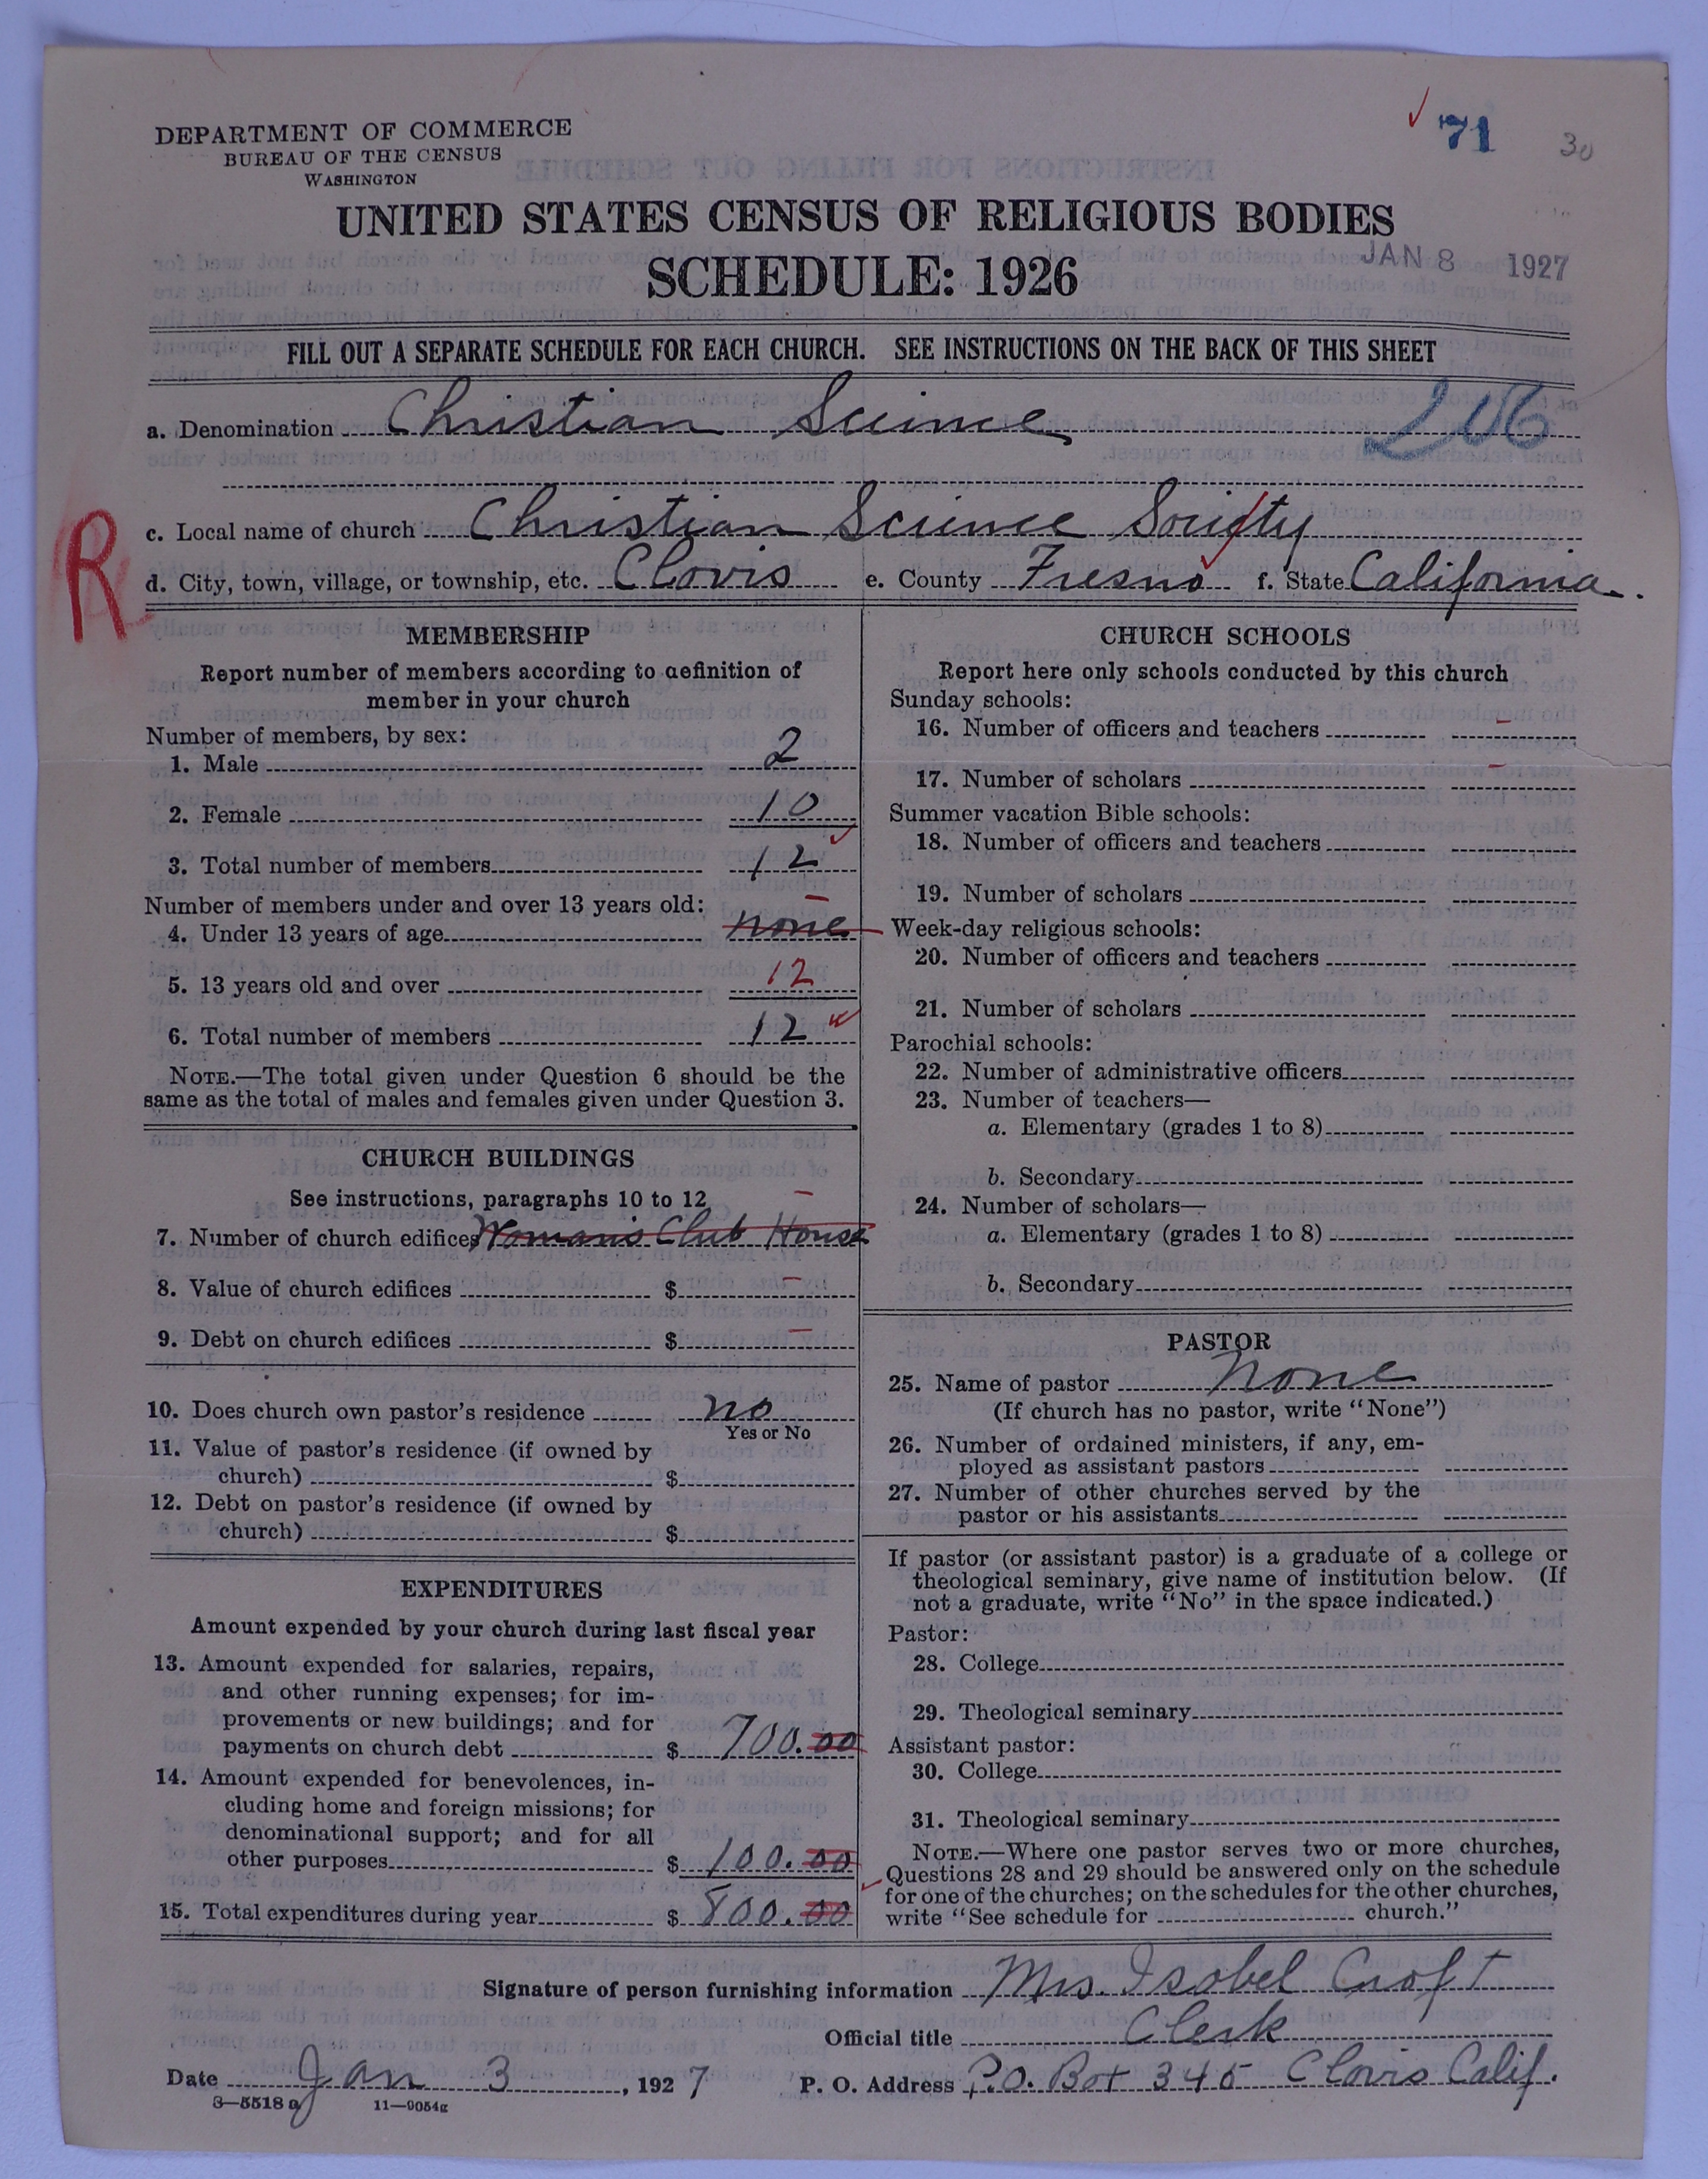 DEPARTMENT OF COMMERCE
BUREAU OF THE CENSUS
WASHINGTON
71
30
UNITED STATES CENSUS OF RELIGIOUS BODIES
SCHEDULE: 1926
JAN 8 1927
FILL OUT A SEPARATE SCHEDULE FOR EACH CHURCH. SEE INSTRUCTIONS ON THE BACK OF THIS SHEET
a. Denomination Christian Science
206
c. Local name of church Christian Science Society
R
d. City, town, village, or township, etc. Clovis e. County Fresno f. State California.
MEMBERSHIP
Report number of members according to definition of
member in your church
Number of members, by sex:
1. Male 2
2. Female 10
3. Total number of members 12
Number of members under and over 13 years old:
4. Under 13 years of age none
5. 13 years old and over 12
6. Total number of members 12
NOTE.—The total given under Question 6 should be the
same as the total of males and females given under Question 3.
CHURCH BUILDINGS
See instructions, paragraphs 10 to 12
7. Number of church edifices Woman's Club House
8. Value of church edifices $ –
9. Debt on church edifices $ –
10. Does church own pastor's residence no
Yes or No
11. Value of pastor's residence (if owned by
church) $
12. Debt on pastor's residence (if owned by
church) $
EXPENDITURES
Amount expended by your church during last fiscal year
13. Amount expended for salaries, repairs,
and other running expenses; for im-
provements or new buildings; and for
payments on church debt $ 700.00
14. Amount expended for benevolences, in-
cluding home and foreign missions; for
denominational support; and for all
other purposes $ 100.00
15. Total expenditures during year $ 800.00
CHURCH SCHOOLS
Report here only schools conducted by this church
Sunday schools:
16. Number of officers and teachers –
17. Number of scholars –
Summer vacation Bible schools:
18. Number of officers and teachers
19. Number of scholars
Week-day religious schools:
20. Number of officers and teachers
21. Number of scholars
Parochial schools:
22. Number of administrative officers
23. Number of teachers—
a. Elementary (grades 1 to 8)
b. Secondary
24. Number of scholars—
a. Elementary (grades 1 to 8)
b. Secondary
PASTOR
25. Name of pastor None
(If church has no pastor, write "None")
26. Number of ordained ministers, if any, em-
ployed as assistant pastors
27. Number of other churches served by the
pastor or his assistants
If pastor (or assistant pastor) is a graduate of a college or
theological seminary, give name of institution below. (If
not a graduate, write "No" in the space indicated.)
Pastor:
28. College
29. Theological seminary
Assistant pastor:
30. College
31. Theological seminary
NOTE.—Where one pastor serves two or more churches,
Questions 28 and 29 should be answered only on the schedule
for one of the churches; on the schedules for the other churches,
write "See schedule for church."
Signature of person furnishing information Mrs. Isobel Croft
Official title Clerk
Date Jan 3, 1927 P. O. Address P.O. Box 345 Clovis Calif.
8—5518a 11—9054a